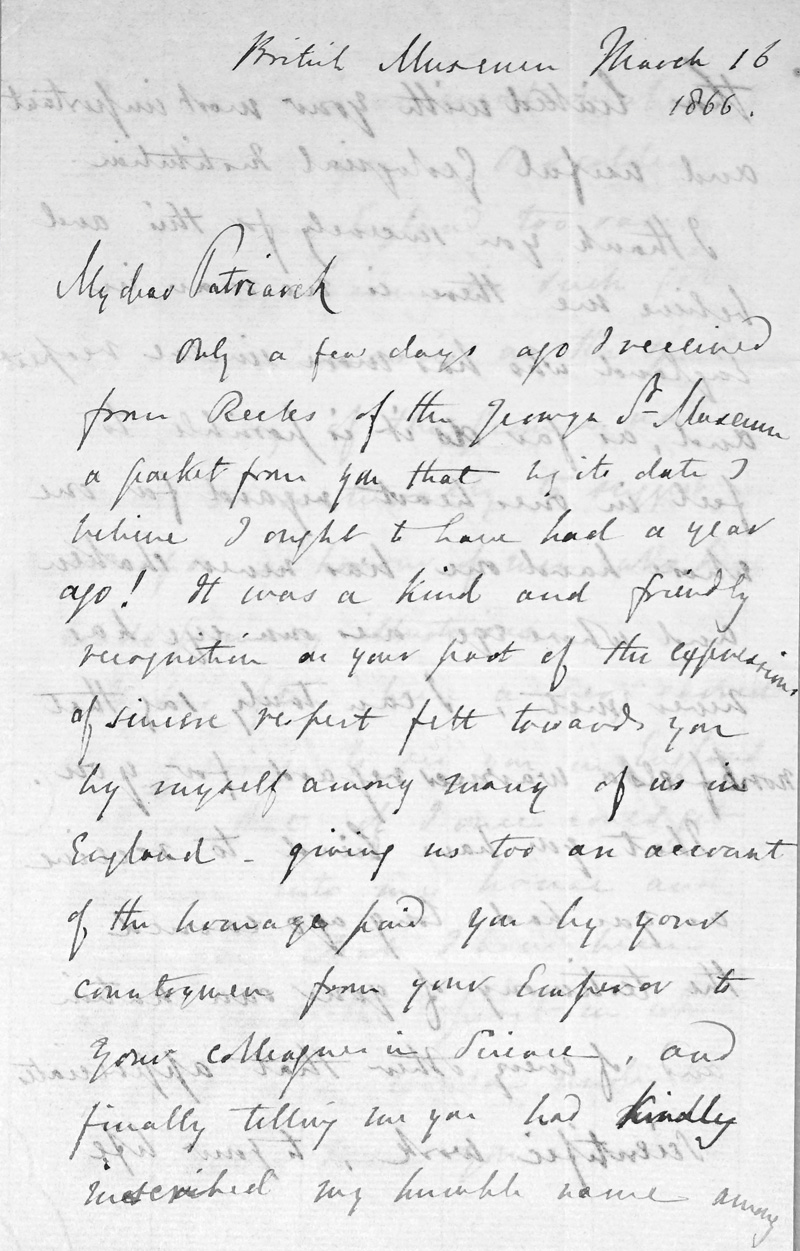 British Museum March 16
1866.
My dear Patriarch
Only a few days ago I received
from Reeks of the Jermyn St Museum
a packet from you that by its date I
believe I ought to have had a year
ago! It was a kind and friendly
recognition on your part of the expressions
of sincere respect felt towards you
by myself among many of us in
England - giving us too an account
of the homage paid you by your
countrymen from your Emperor to
your colleagues in Science, and
finally telling me you had kindly
inscribed my humble name among